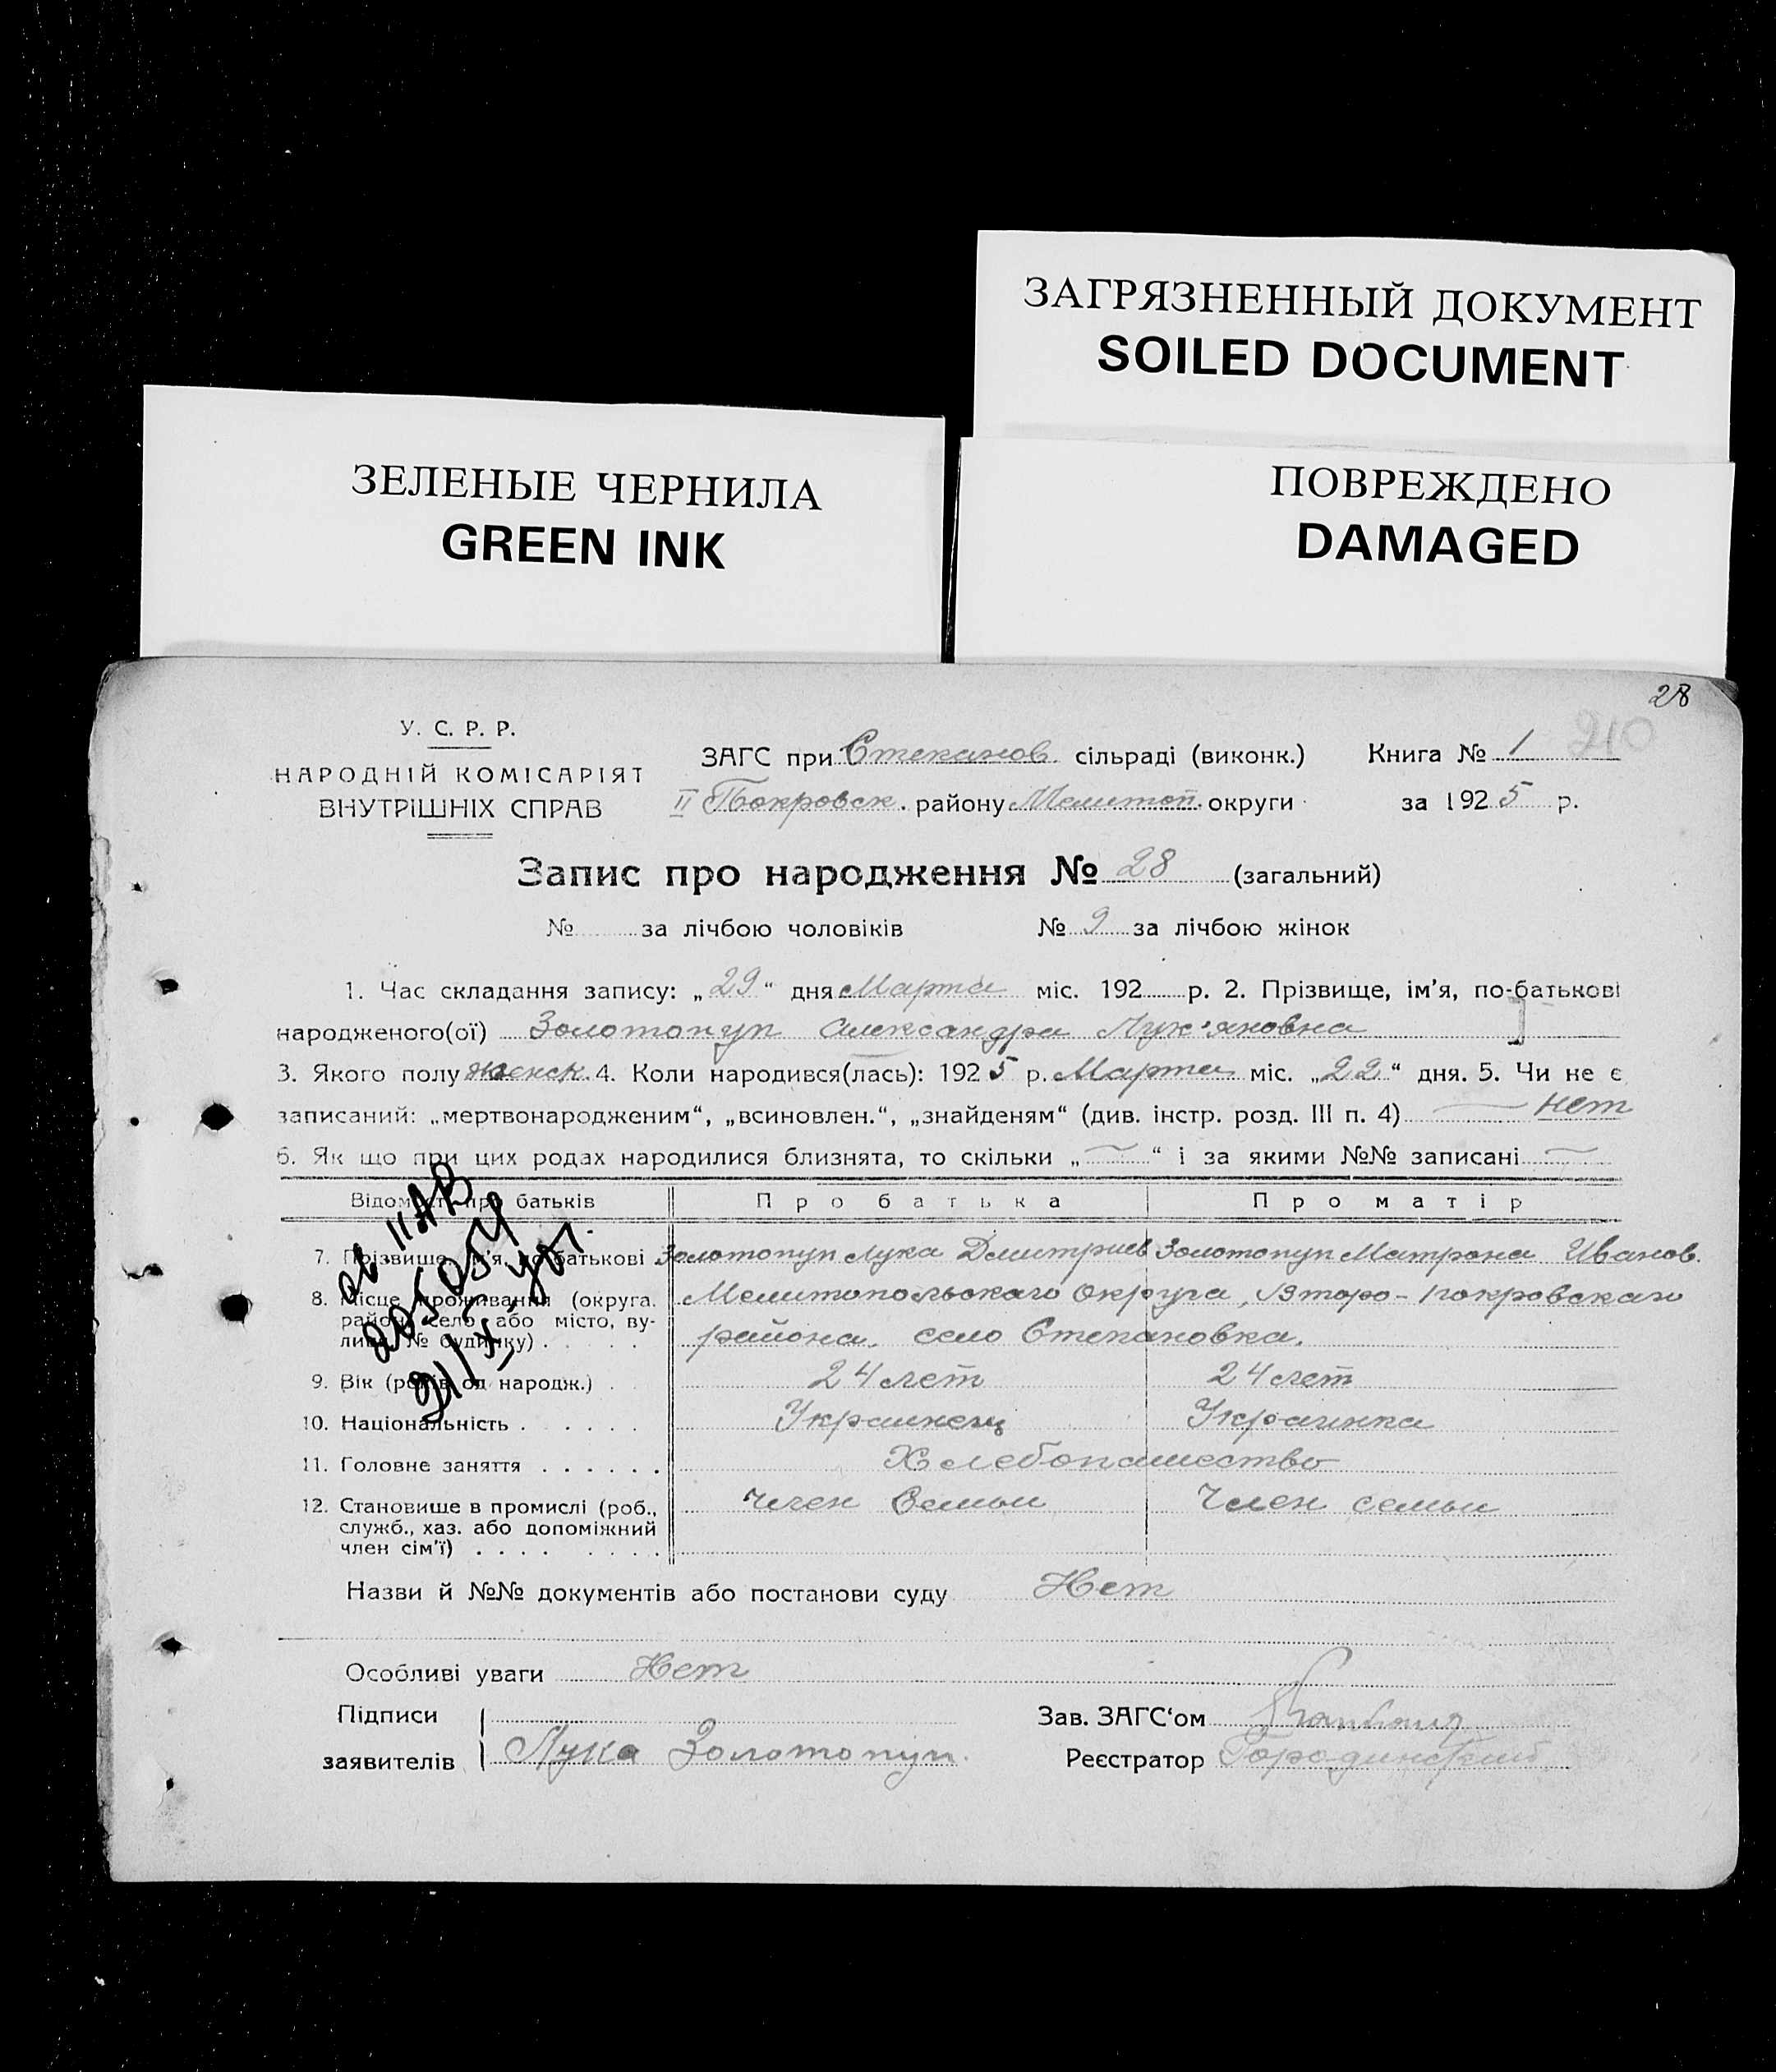 ЗАГРЯЗНЕННЫЙ ДОКУМЕНТ
SOILED DOCUMENT
ЗЕЛЕНЫЕ ЧЕРНИЛА
GREEN INK
ПОВРЕЖДЕНО
DAMAGED
28
210
У. С. Р. Р.
НАРОДНІЙ КОМІСАРІЯТ
ВНУТРІШНІХ СПРАВ
ЗАГС при Степанов. сільраді (виконк.) Книга № 1
II Покровск. району Мелитоп. округи за 1925 р.
Запис про народження № 28 (загальний)
№ за лічбою чоловіків № 9 за лічбою жінок
1. Час складання запису: „29“ дня Марта міс. 192 р. 2. Прізвище, ім’я, по-батькові
народженого(ої) Золотопуп Александра Лук'яновна
3. Якого полу женск. 4. Коли народився(лась): 1925 р. Марта міс. „22“ дня. 5. Чи не є
записаний: „мертвонародженим“, „всиновлен.“, „знайденям“ (див. інстр. розд. III п. 4) нет
6. Як що при цих родах народилися близнята, то скільки „ “ і за якими №№ записані
Відомості про батьків Про батька Про матір
7. Прізвище, ім’я, по-батькові Золотопуп Лука Дмитриев Золотопуп Матрона Иванов.
8. Місце проживання (округа, Мелитопольскаго Округа, Второ-Покровскаго
район, село або місто, ву- района, село Степановка.
лиця, № будинку)
9. Вік (років од народж.) 24 лет 24 лет
10. Національність Украинец Украинка
11. Головне заняття Хлебопашество
12. Становище в промислі (роб., Член Семьи Член семьи
служб., хаз. або допоміжний
член сім’ї)
Назви й №№ документів або постанови суду Нет
Особливі уваги Нет
Підписи Зав. ЗАГС‘ом
заявителів Лука Золотопуп. Реєстратор Городинский